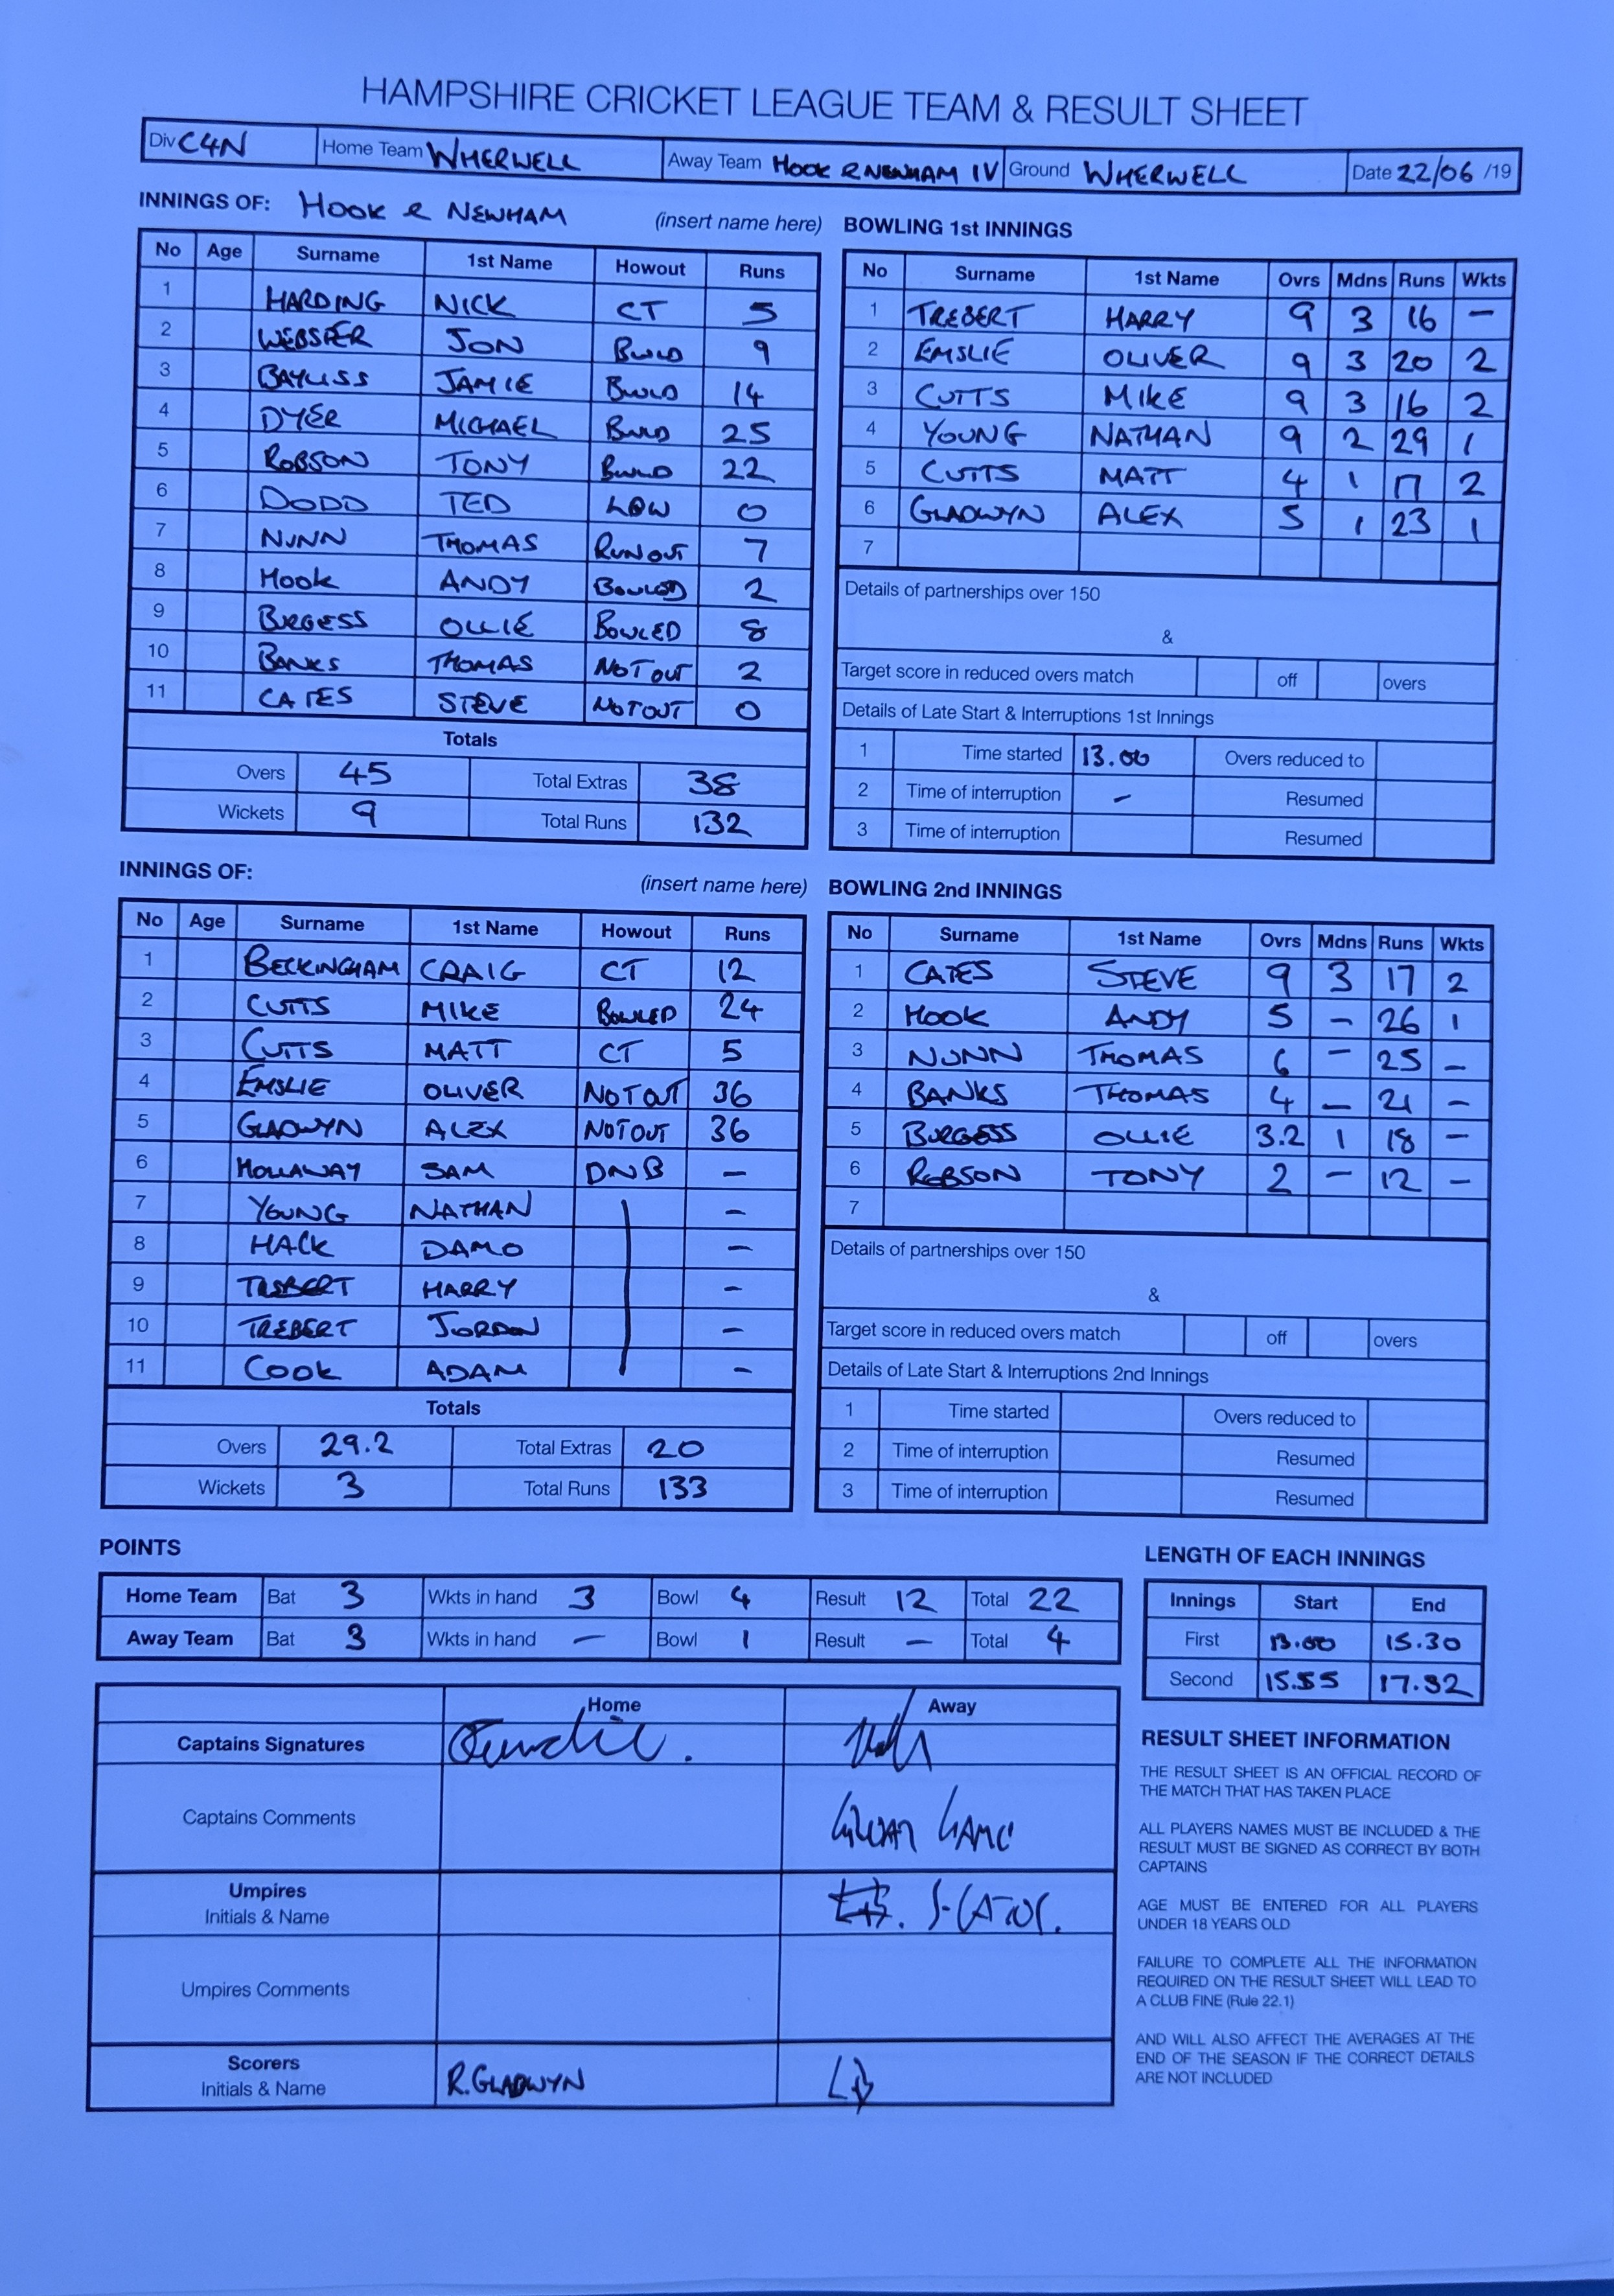 HAMPSHIRE CRICKET LEAGUE TEAM & RESULT SHEET
Div C4N Home Team WHERWELL Away Team HOOK & NEWHAM IV Ground WHERWELL Date 22/06 /19
INNINGS OF: HOOK & NEWHAM (insert name here)
No Age Surname 1st Name Howout Runs
1 HARDING NICK CT 5
2 WEBSTER JON BWLD 9
3 BAYLISS JAMIE BWLD 14
4 DYER MICHAEL BWLD 25
5 ROBSON TONY BWLD 22
6 DODD TED LBW 0
7 NUNN THOMAS RUN OUT 7
8 HOOK ANDY BOWLED 2
9 BURGESS OLLIE BOWLED 8
10 BANKS THOMAS NOT OUT 2
11 CATES STEVE NOT OUT 0
Totals
Overs 45 Total Extras 38
Wickets 9 Total Runs 132
BOWLING 1st INNINGS
No Surname 1st Name Ovrs Mdns Runs Wkts
1 TREBERT HARRY 9 3 16 -
2 EMSLIE OLIVER 9 3 20 2
3 CUTTS MIKE 9 3 16 2
4 YOUNG NATHAN 9 2 29 1
5 CUTTS MATT 4 1 17 2
6 GLADWYN ALEX 5 1 23 1
7
Details of partnerships over 150
&
Target score in reduced overs match off overs
Details of Late Start & Interruptions 1st Innings
1 Time started 13.00 Overs reduced to
2 Time of interruption - Resumed
3 Time of interruption Resumed
INNINGS OF: (insert name here)
No Age Surname 1st Name Howout Runs
1 BECKINGHAM CRAIG CT 12
2 CUTTS MIKE BOWLED 24
3 CUTTS MATT CT 5
4 EMSLIE OLIVER NOT OUT 36
5 GLADWYN ALEX NOT OUT 36
6 HOLLAWAY SAM DNB -
7 YOUNG NATHAN -
8 HACK DAMO -
9 TREBERT HARRY -
10 TREBERT JORDON -
11 COOK ADAM -
Totals
Overs 29.2 Total Extras 20
Wickets 3 Total Runs 133
BOWLING 2nd INNINGS
No Surname 1st Name Ovrs Mdns Runs Wkts
1 CATES STEVE 9 3 17 2
2 HOOK ANDY 5 - 26 1
3 NUNN THOMAS 6 - 25 -
4 BANKS THOMAS 4 - 21 -
5 BURGESS OLLIE 3.2 1 18 -
6 ROBSON TONY 2 - 12 -
7
Details of partnerships over 150
&
Target score in reduced overs match off overs
Details of Late Start & Interruptions 2nd Innings
1 Time started Overs reduced to
2 Time of interruption Resumed
3 Time of interruption Resumed
POINTS
Home Team Bat 3 Wkts in hand 3 Bowl 4 Result 12 Total 22
Away Team Bat 3 Wkts in hand - Bowl 1 Result - Total 4
LENGTH OF EACH INNINGS
Innings Start End
First 13.00 15.30
Second 15.55 17.32
Home Away
Captains Signatures
Captains Comments
Umpires
Initials & Name
Umpires Comments
Scorers
Initials & Name R.GLADWYN
RESULT SHEET INFORMATION
THE RESULT SHEET IS AN OFFICIAL RECORD OF
THE MATCH THAT HAS TAKEN PLACE
ALL PLAYERS NAMES MUST BE INCLUDED & THE
RESULT MUST BE SIGNED AS CORRECT BY BOTH
CAPTAINS
AGE MUST BE ENTERED FOR ALL PLAYERS
UNDER 18 YEARS OLD
FAILURE TO COMPLETE ALL THE INFORMATION
REQUIRED ON THE RESULT SHEET WILL LEAD TO
A CLUB FINE (Rule 22.1)
AND WILL ALSO AFFECT THE AVERAGES AT THE
END OF THE SEASON IF THE CORRECT DETAILS
ARE NOT INCLUDED